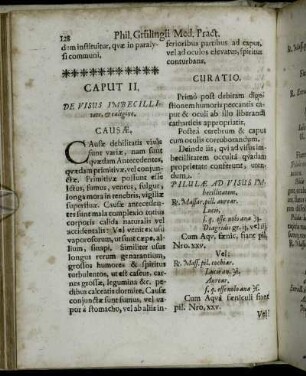 128 Phil. Grülingii Med. Pract.
dam instituitur, quæ in paraly-
si communi.
CAPUT II.
DE VISUS IMBECILLI-
tate, & caligine.
CAUSÆ.
CAusæ debilitatis visus
sunt variæ, nam sunt
quædam Antecedentes,
quædam primitivæ, vel conjun-
ctæ. Primitivæ possunt esse
Ictus, fumus, ventus, fulgur,
longa mora in tenebris, vigiliæ
superfluæ. Causæ antecedentes
sunt mala complexio totius
corporis calida naturalis vel
accidentalis: Vel venit ex usu
vaporosorum, ut sunt cepæ, al-
lium, sinapi. Similiter usus
longus rerum generantium,
grossos humores & spiritus
turbulentos, ut est caseus, carnes
grossæ, legumina &c. pe-
dibus calceatis dormire. Causæ
conjunctæ sunt fumus, vel vapor
à stomacho, vel ab aliis in-
ferioribus partibus ad caput,
vel ad oculos elevatus, spiritus
conturbans.
CURATIO.
Primò post debitam digestionem
humoris peccantis caput
& oculi ab illo liberandi
catharticis appropriatis.
Postea cerebrum & caput
cum oculis corroborandum.
Deinde iis, qui ad visus im-
becillitatem occultâ quâdam
proprietate conferunt, utendum.
PILULÆ AD VISUS IM-
becillitatem.
℞. Massæ pil. aureæ.
Lucis.
Com Aqv. fœnic. fiant pil.
Nro. xxv.
Vel:
℞. Mass. pil. cochiar.
Lucis
Aurear.
Cum Aqvâ fœniculi fiant
pil. Nro. xxv.
Vel